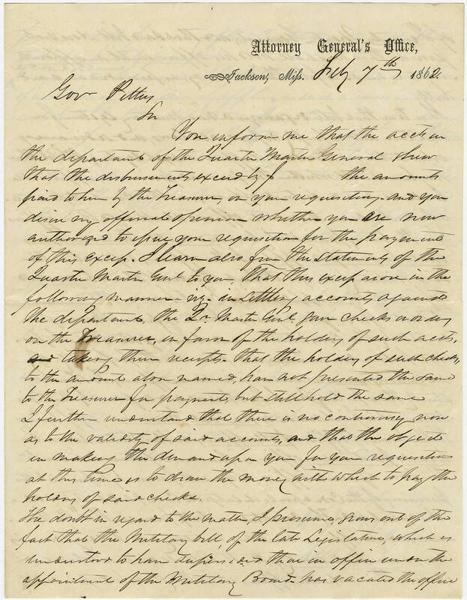 Attorney General's Office,
Jackson, Miss. Feby 7th 1862
Gov Pettus
Sir
You inform me that the accts in
the department of the Quarter Master General show
that the disbursements exceed by $ the amounts
paid to him by the Treasurer, on your requisitions, and you
desire my official opinion whether you are now
authorized to issue your requisition for the payment
of this excess. I learn also from the statements of the
Quarter Master Genl to you that this excess arose in the
following manner viz: in settling accounts against
the department the Qr Master Genl gave checks or orders
on the Treasurer, in favor of the holders of such accts,
taking their receipts. That the holders of such checks,
to the amount above named, have not presented the same
to the Treasurer for payment, but still hold the same
I further understand that there is no controversy now
as to the validity of said accounts, and that the object
in making the demand upon you for your requisition
at this time is to draw the money with which to pay the
holders of said checks.
The doubt in regard to the matter, I presume, grows out of the
fact that the Military bill, of the late Legislature, which is
understood to have superseded those in office under the
appointment of the Military Board, has vacated the office